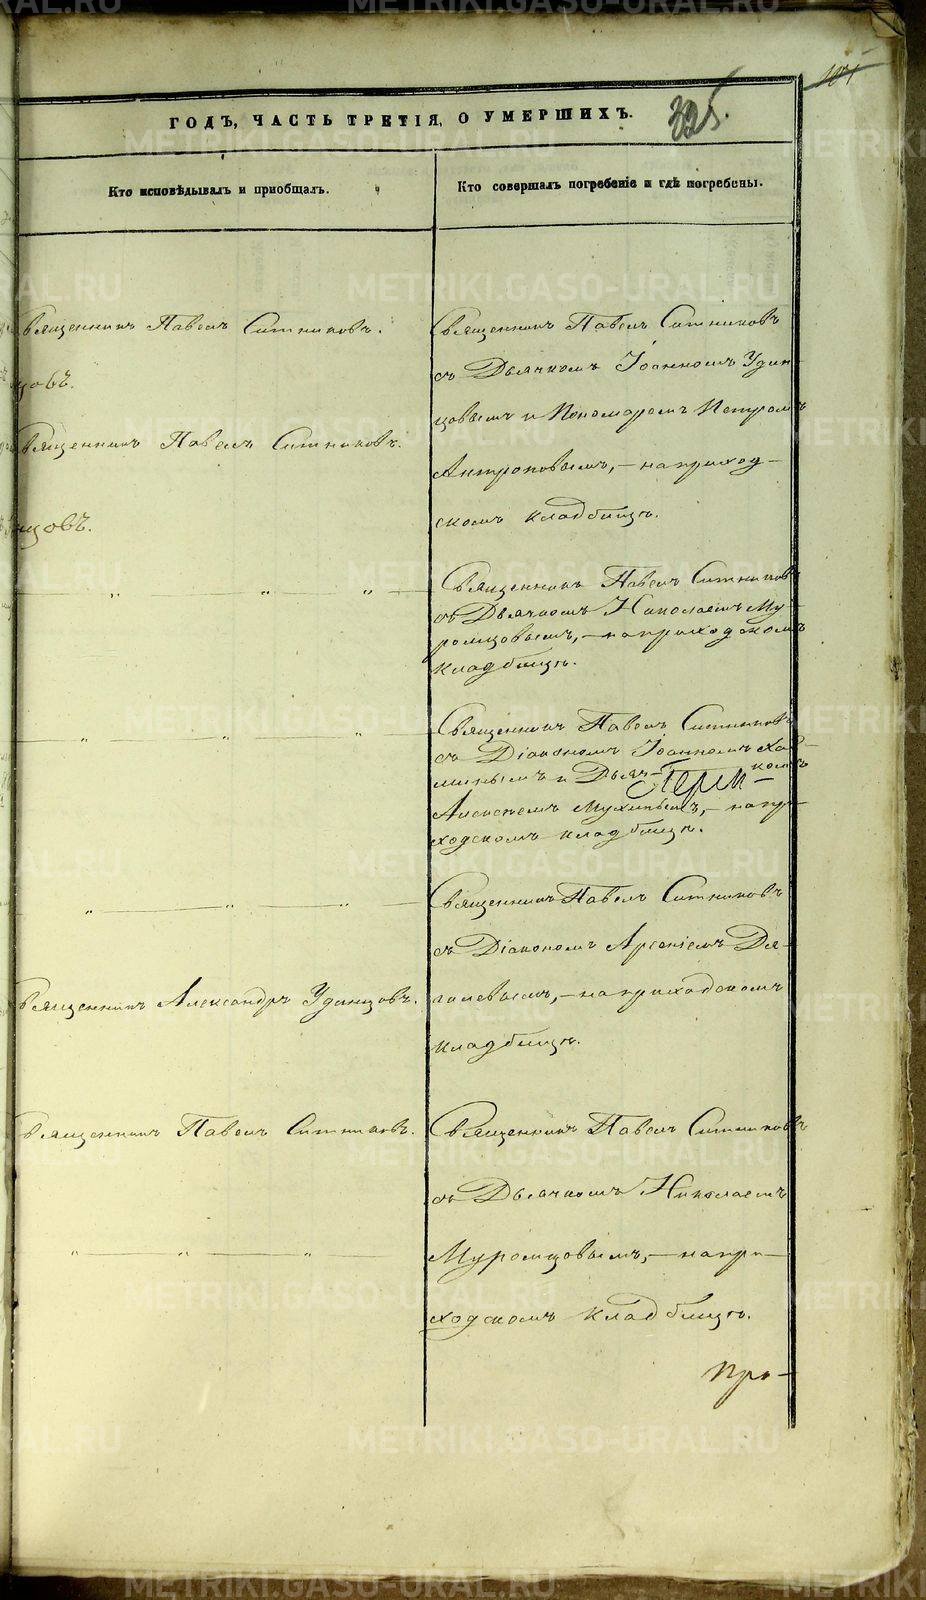 ГОДЪ, ЧАСТЬ ТРЕТІЯ, О УМЕРШИХЪ.
325.
Кто исповѣдывалъ и пріобщалъ.
Кто совершалъ погребеніе и гдѣ погребены.
вященникъ Павелъ Ситниковъ.
цовъ.
вященникъ Павелъ Ситниковъ.
нцовъ.
„ „ „
„ „ „
„ „ „
вященникъ Александръ Удинцовъ.
вященникъ Павелъ Ситниковъ.
„ „ „
Священникъ Павелъ Ситниковъ
съ Дьячкомъ Іоанномъ Удин
цовымъ и Пономаремъ Петромъ
Антроповымъ, – на приход–
скомъ кладбищѣ.
Священникъ Павелъ Ситниковъ
съ Дьячкомъ Николаемъ Му–
ромцовымъ, – на приходскомъ
кладбищѣ.
Священникъ Павелъ Ситниковъ
съ Діакономъ Іоанномъ
и Дьяч– комъ
Алексѣемъ Мухинымъ, – на при–
ходскомъ кладбищѣ.
Священникъ Павелъ Ситниковъ
съ Діакономъ Арсеніемъ Дя–
гилевымъ, – на приходскомъ
кладбищѣ.
Священникъ Павелъ Ситниковъ
съ Дьячкомъ Николаемъ
Муромцовымъ, – на при–
ходскомъ кладбищѣ.
METRIKI.GASO-URAL.RU